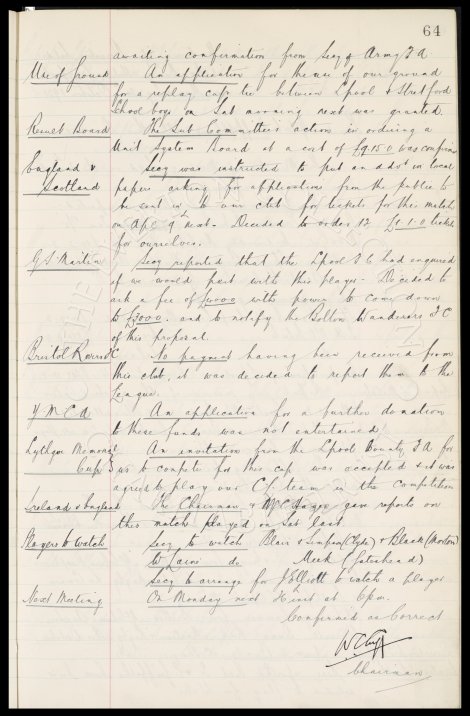 64
awaiting confirmation from Secy of Army F A
Use of ground An application for the use of our ground
for a replay cup tie between Lpool & Stretford
School boys on Sat morning next was granted.
Board The Sub Committee's action in ordering a
Unit System Board at a cost of £9.15.0 was confirmed
England v Secy was instructed to put an advt in local
Scotland papers asking for applications from the public to
be sent in to our club for tickets for this match
on Apl 9th next. Decided to order 12 £1.1.0 tickets
for ourselves.
G S Martin Secy reported that the Lpool F C had enquired
if we would part with this player. Decided to
ask a fee of £4000 with power to come down
to £3000. and to notify the Bolton Wanderers F C
of this proposal.
Bristol Rovers FC No payment having been received from
this club, it was decided to report them to the
League.
Y M C A An application for a further donation
to these funds was not entertained
Lythgoe Memorial An invitation from the Lpool County F A for
Cup us to compete for this cup was accepted & it was
agreed to play our team in the competition
Ireland v England The Chairman & gave reports on
this match played on Sat last
Players to watch Secy to watch Blair & (Clyde) & Black (Morton)
to do Meek (Gateshead)
Secy to arrange for J Elliott to watch a player
Next Meeting On Monday next inst at 6 p.m.
Confirmed as Correct
Chairman